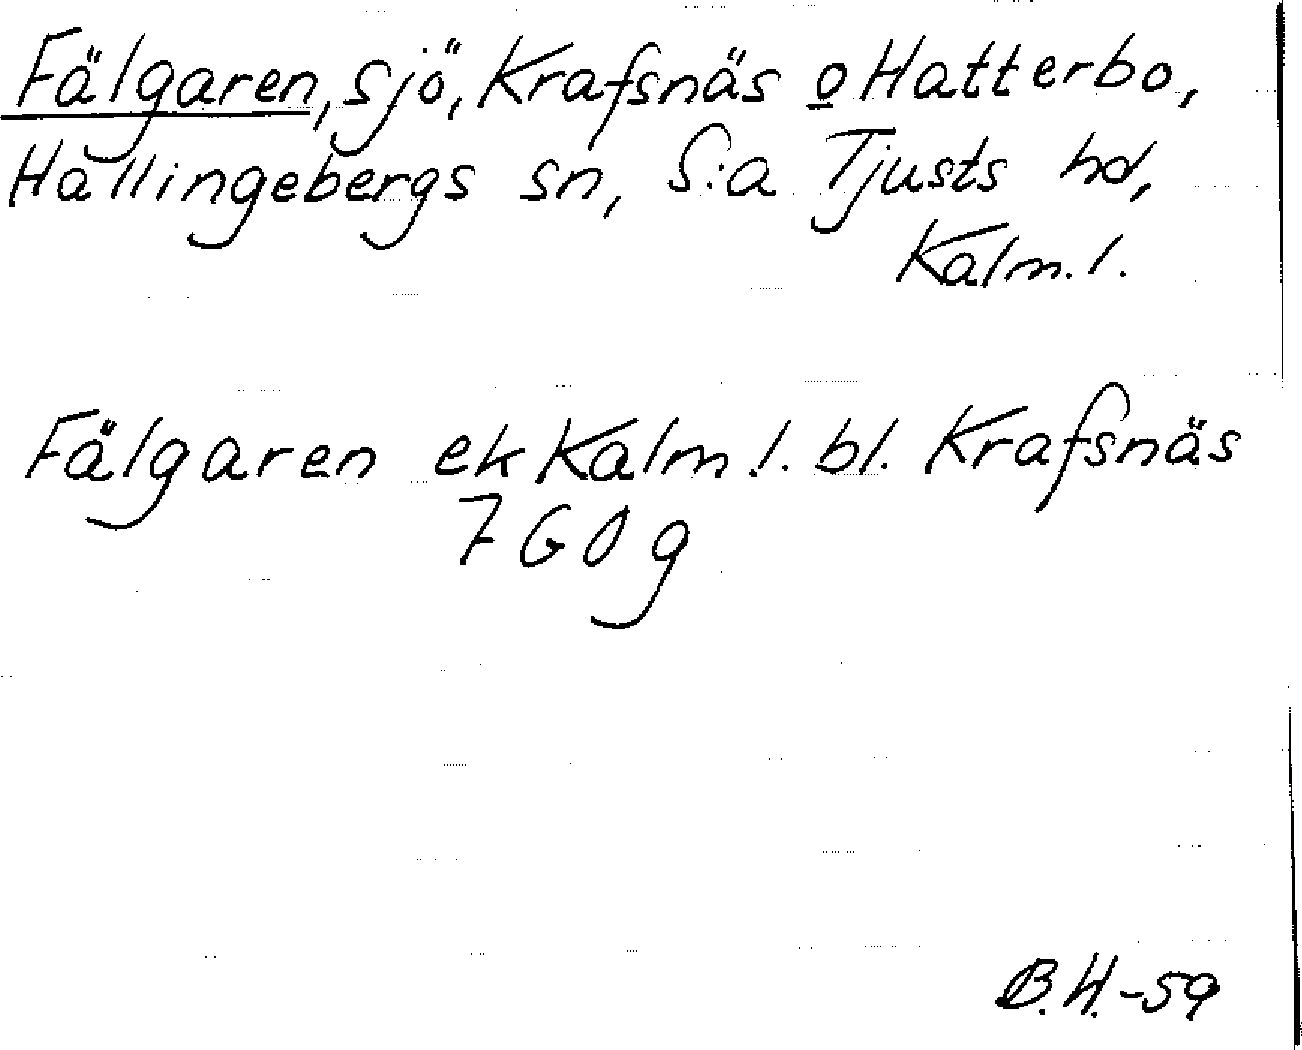 Fälgaren, sjö, Krafsnäs o Hatterbo,
Hallingebergs sn, S:a Tjusts hd,
Kalm. l.
Fälgaren ek Kalm. l. bl. Krafsnäs
7 G 0 g
B.H.-59